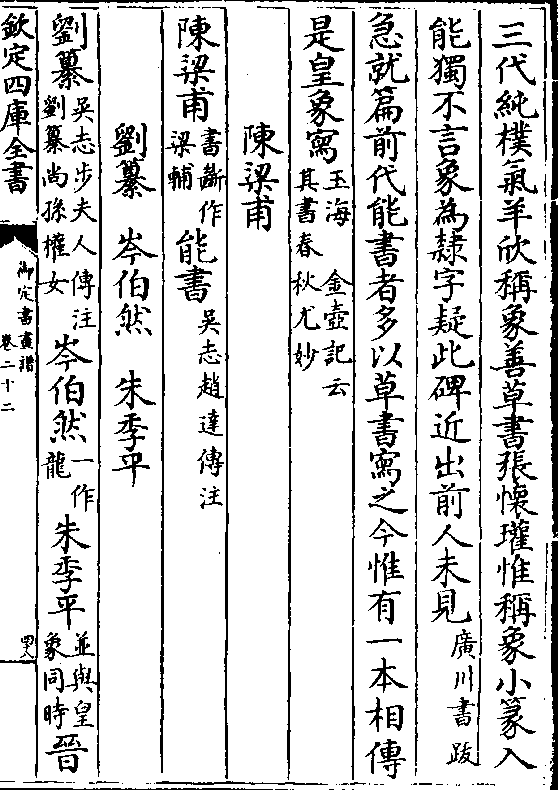 三代純樸氣羊欣稱象善草書張懷瓘惟稱象小篆入
能獨不言象為隸字疑此碑近出前人未見廣川書跋
急就篇前代能書者多以草書寫之今惟有一本相傳
是皇象寫玉海 金壺記云其書春秋尤妙
陳梁甫
陳梁甫書斷作梁輔能書吳志趙達傳注
劉纂 岑伯然 朱季平
劉纂吳志步夫人傳注劉纂尚孫權女岑伯然一作龍朱季平並與皇象同時晉
欽定四庫全書
御定書畫譜
卷二十二